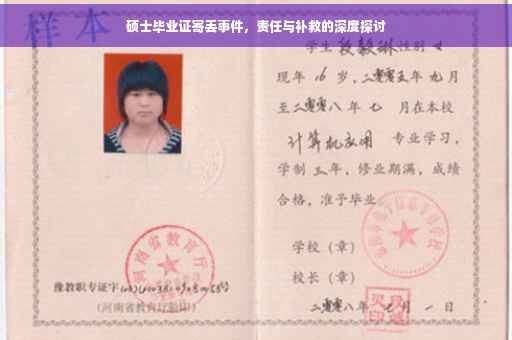 硕士毕业证寄丢事件，责任与补救的深度探讨
样本
学生 段毅琳 性别 女
现年 16 岁，二零零五年 九 月
至二零零八年 七 月在本校
计算机应用 专业学习，
学制 三 年，修业期满，成绩
合格，准予毕业
学校（章）
校长（章）
二零零八年 七 月 一 日
河南省教育厅
豫教职专证字
（河南省教育厅验印）